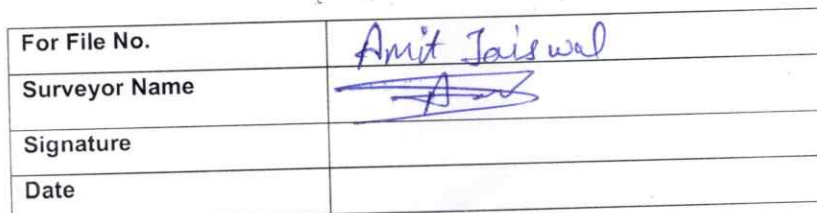 For File No. Amit Jaiswal
Surveyor Name
Signature
Date